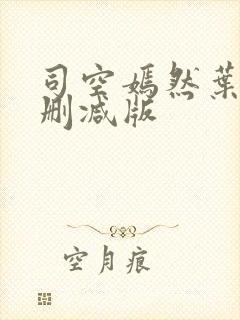 司空嫣然葉
删减版
空月痕